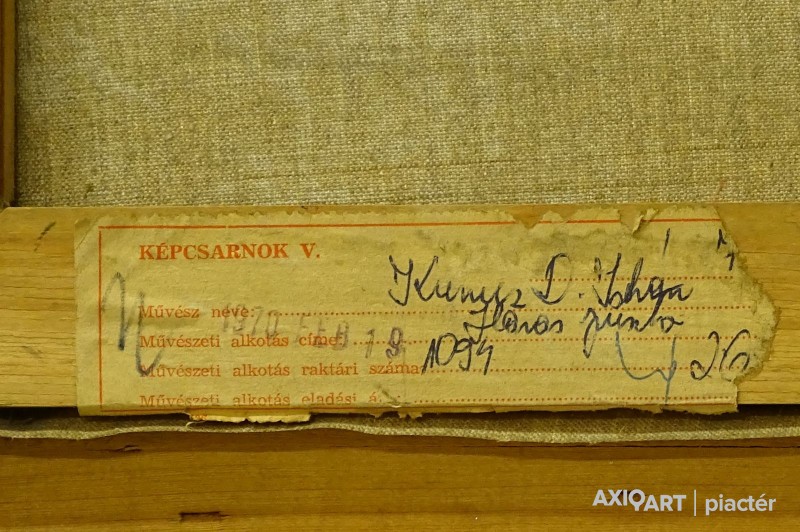 KÉPCSARNOK V.
Művész neve: Kunusz D. István
Művészeti alkotás címe
1970 FEB 19
Művészeti alkotás raktári száma 1094 26
Művészeti alkotás eladási á.
AXIOART | piactér